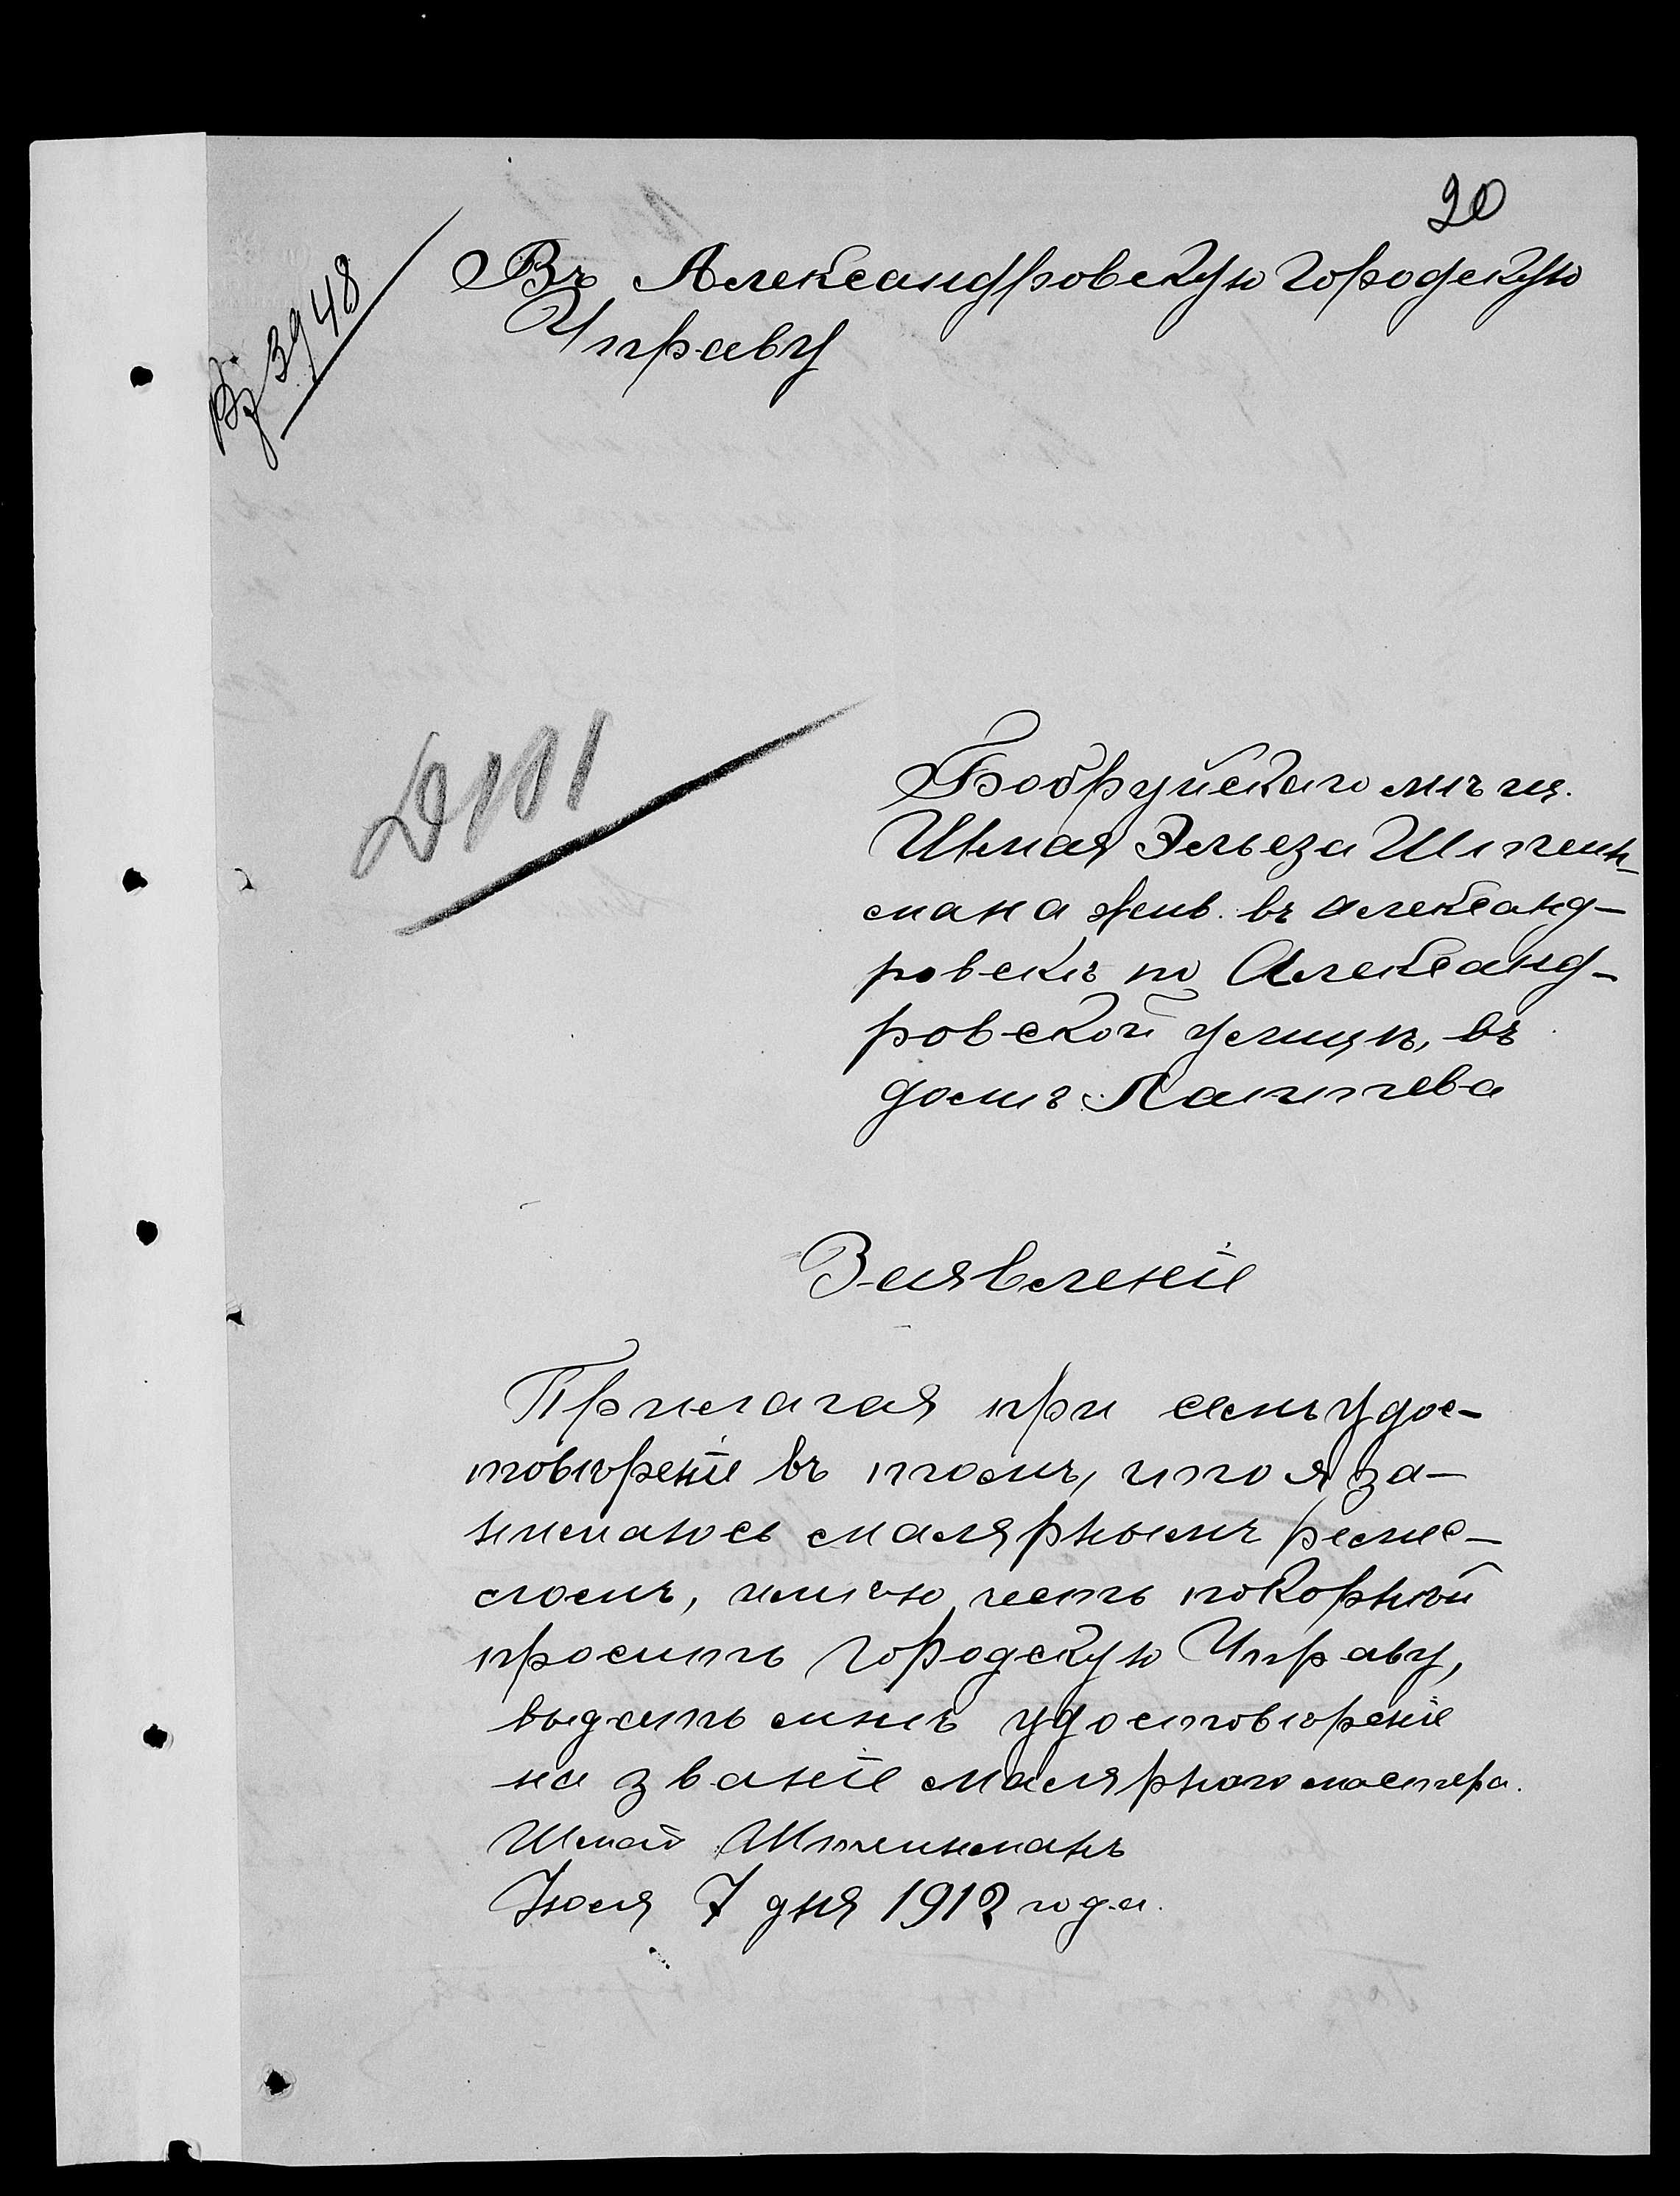 20
3948
Въ Александровскую Городскую
Управу
Д 101
Бобруйскаго мѣщ.
Шмая Эльеза Штейн-
мана жив. въ Александ-
ровскѣ по Александ-
ровской улицѣ, въ
домѣ Лаптева
Заявленіе
Прилагая при семъ удос-
товѣреніе въ томъ, что я за-
нимаюсь малярнымъ реме-
сломъ, имѣю честь покорнѣй
просить Городскую Управу,
выдать мнѣ удостовѣреніе
на званіе малярного мастера.
Шмай Штейнманъ
Іюля 7 дня 1912 года.